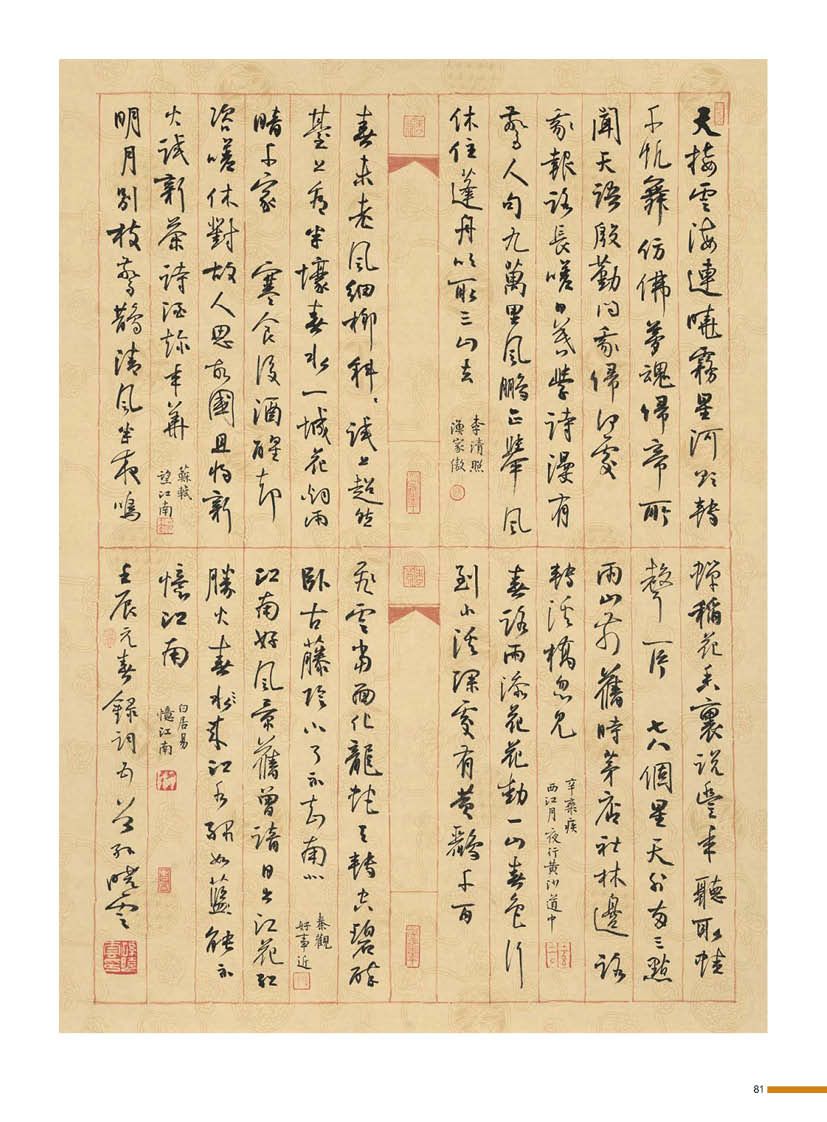 天接雲濤連曉霧星河欲轉
千帆舞仿佛夢魂歸帝所
聞天語殷勤問我歸何處
我報路長嗟日暮學詩漫有
驚人句九萬里風鵬正舉風
休住蓬舟吹取三山去
李清照
漁家傲
春未老風細柳斜斜試上超然
臺上看半壕春水一城花烟雨
暗千家 寒食後酒醒却
咨嗟休對故人思故國且將新
火試新茶詩酒趁年華
蘇軾
望江南
明月別枝驚鵲清風半夜鳴
蟬稻花香裏説豐年聽取蛙
聲一片 七八個星天外兩三點
雨山前舊時茅店社林邊路
轉溪橋忽見
辛棄疾
西江月 夜行黄沙道中
春路雨添花花動一山春色行
到小溪深處有黄鸝千百
飛雲當面化龍蛇夭轉空碧醉
卧古藤陰下了不知南北
秦觀
好事近
江南好風景舊曾諳日出江花紅
勝火春來江水緑如藍能不
憶江南
白居易
憶江南
壬辰元春録詞五首孫曉雲
81